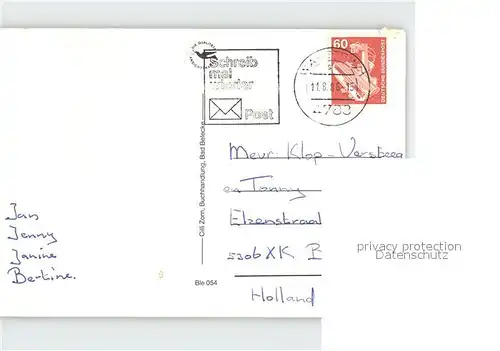 Schreib
mal
wieder
Post
60
DEUTSCHE BUNDESPOST
11.8.86-15
4783
Mevr. Klop-Versteeg
en Tonny
Elzenstraat
5306 XK B
Holland
Jan
Jenny
Janine
Bertine.
Cilli Zorn, Buchhandlung, Bad Belecke
Ble 054
privacy protection
Datenschutz